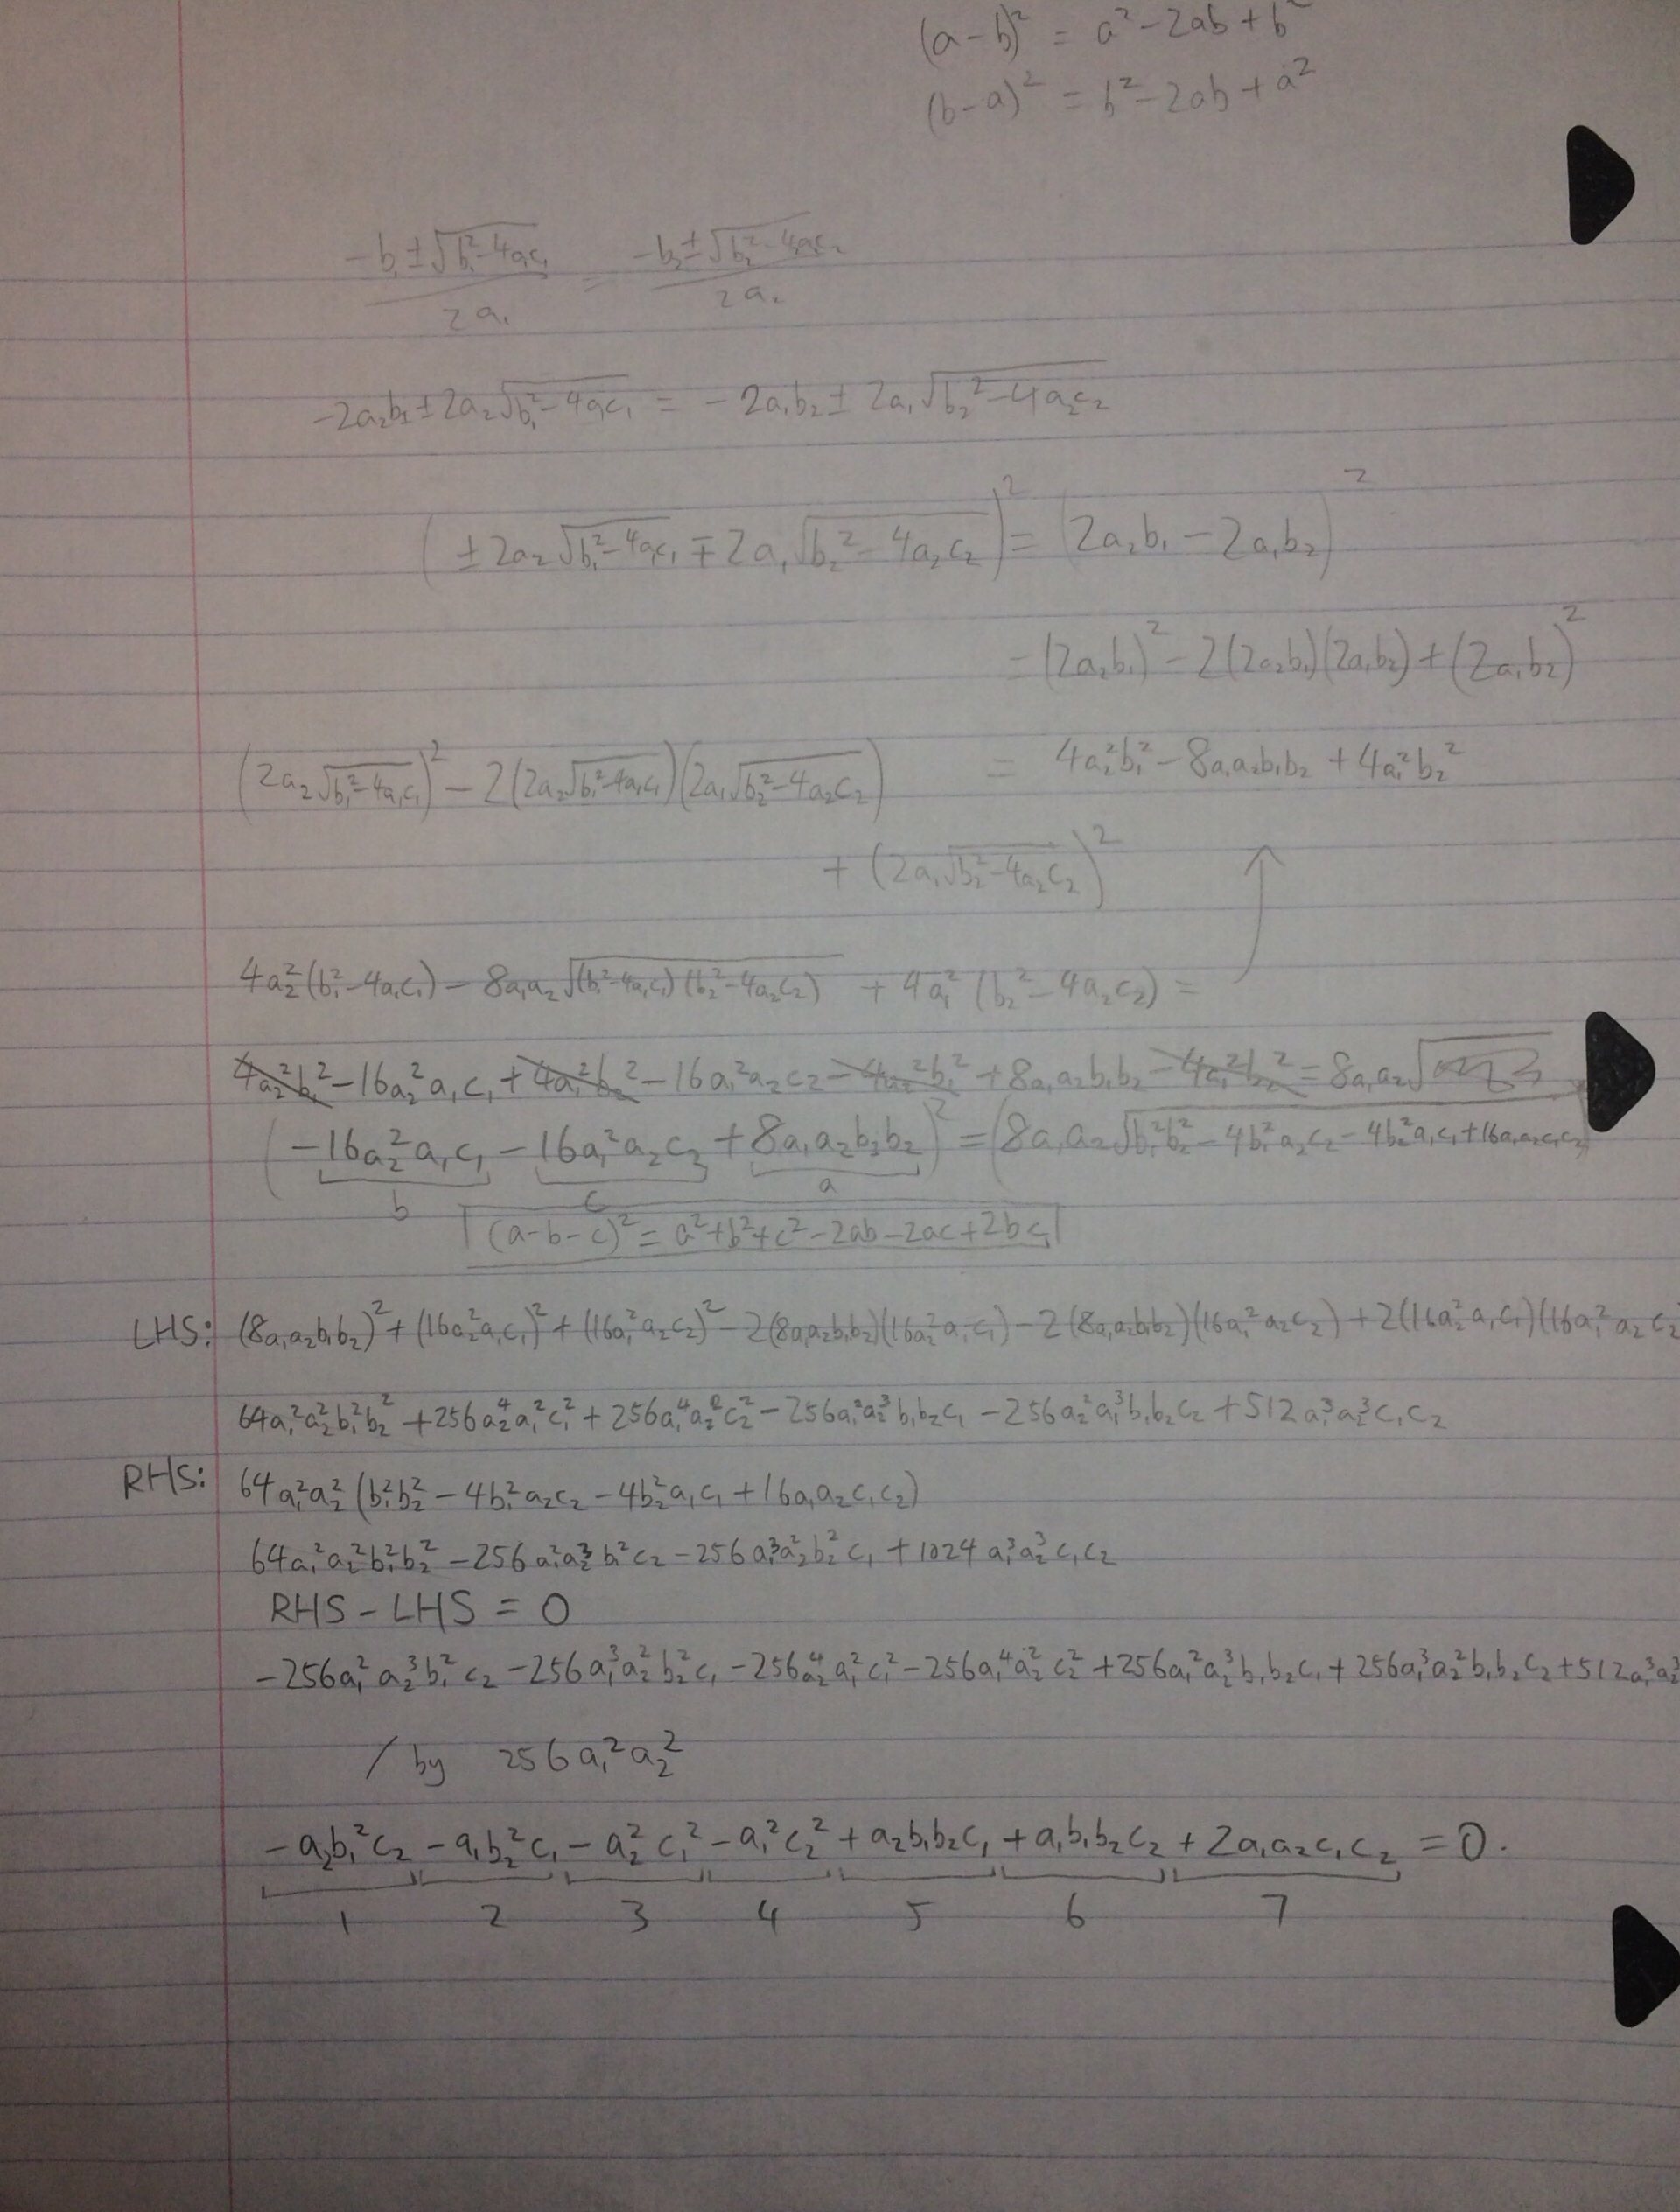 (a-b)² = a² - 2ab + b²
(b-a)² = b² - 2ab + a²
(-b₁ ± √(b₁² - 4a₁c₁)) / 2a₁ = (-b₂ ± √(b₂² - 4a₂c₂)) / 2a₂
-2a₂b₁ ± 2a₂√(b₁² - 4a₁c₁) = -2a₁b₂ ± 2a₁√(b₂² - 4a₂c₂)
(±2a₂√(b₁² - 4a₁c₁) ∓ 2a₁√(b₂² - 4a₂c₂))² = (2a₂b₁ - 2a₁b₂)²
= (2a₂b₁)² - 2(2a₂b₁)(2a₁b₂) + (2a₁b₂)²
(2a₂√(b₁² - 4a₁c₁))² - 2(2a₂√(b₁² - 4a₁c₁))(2a₁√(b₂² - 4a₂c₂)) = 4a₂²b₁² - 8a₁a₂b₁b₂ + 4a₁²b₂²
+ (2a₁√(b₂² - 4a₂c₂))²
4a₂²(b₁² - 4a₁c₁) - 8a₁a₂√((b₁² - 4a₁c₁)(b₂² - 4a₂c₂)) + 4a₁²(b₂² - 4a₂c₂) =
4a₂²b₁² - 16a₂²a₁c₁ + 4a₁²b₂² - 16a₁²a₂c₂ - 4a₂²b₁² + 8a₁a₂b₁b₂ - 4a₁²b₂² = 8a₁a₂√
(-16a₂²a₁c₁ - 16a₁²a₂c₂ + 8a₁a₂b₁b₂)² = (8a₁a₂√(b₁²b₂² - 4b₁²a₂c₂ - 4b₂²a₁c₁ + 16a₁a₂c₁c₂)
b c a
(a-b-c)² = a² + b² + c² - 2ab - 2ac + 2bc
LHS: (8a₁a₂b₁b₂)² + (16a₂²a₁c₁)² + (16a₁²a₂c₂)² - 2(8a₁a₂b₁b₂)(16a₂²a₁c₁) - 2(8a₁a₂b₁b₂)(16a₁²a₂c₂) + 2(16a₂²a₁c₁)(16a₁²a₂c₂
64a₁²a₂²b₁²b₂² + 256a₂⁴a₁²c₁² + 256a₁⁴a₂²c₂² - 256a₁²a₂³b₁b₂c₁ - 256a₂²a₁³b₁b₂c₂ + 512a₁³a₂³c₁c₂
RHS: 64a₁²a₂²(b₁²b₂² - 4b₁²a₂c₂ - 4b₂²a₁c₁ + 16a₁a₂c₁c₂)
64a₁²a₂²b₁²b₂² - 256a₁²a₂³b₁²c₂ - 256a₁³a₂²b₂²c₁ + 1024a₁³a₂³c₁c₂
RHS - LHS = 0
-256a₁²a₂³b₁²c₂ - 256a₁³a₂²b₂²c₁ - 256a₂⁴a₁²c₁² - 256a₁⁴a₂²c₂² + 256a₁²a₂³b₁b₂c₁ + 256a₁³a₂²b₁b₂c₂ + 512a₁³a₂³
/ by 256a₁²a₂²
-a₂b₁²c₂ - a₁b₂²c₁ - a₂²c₁² - a₁²c₂² + a₂b₁b₂c₁ + a₁b₁b₂c₂ + 2a₁a₂c₁c₂ = 0.
1 2 3 4 5 6 7